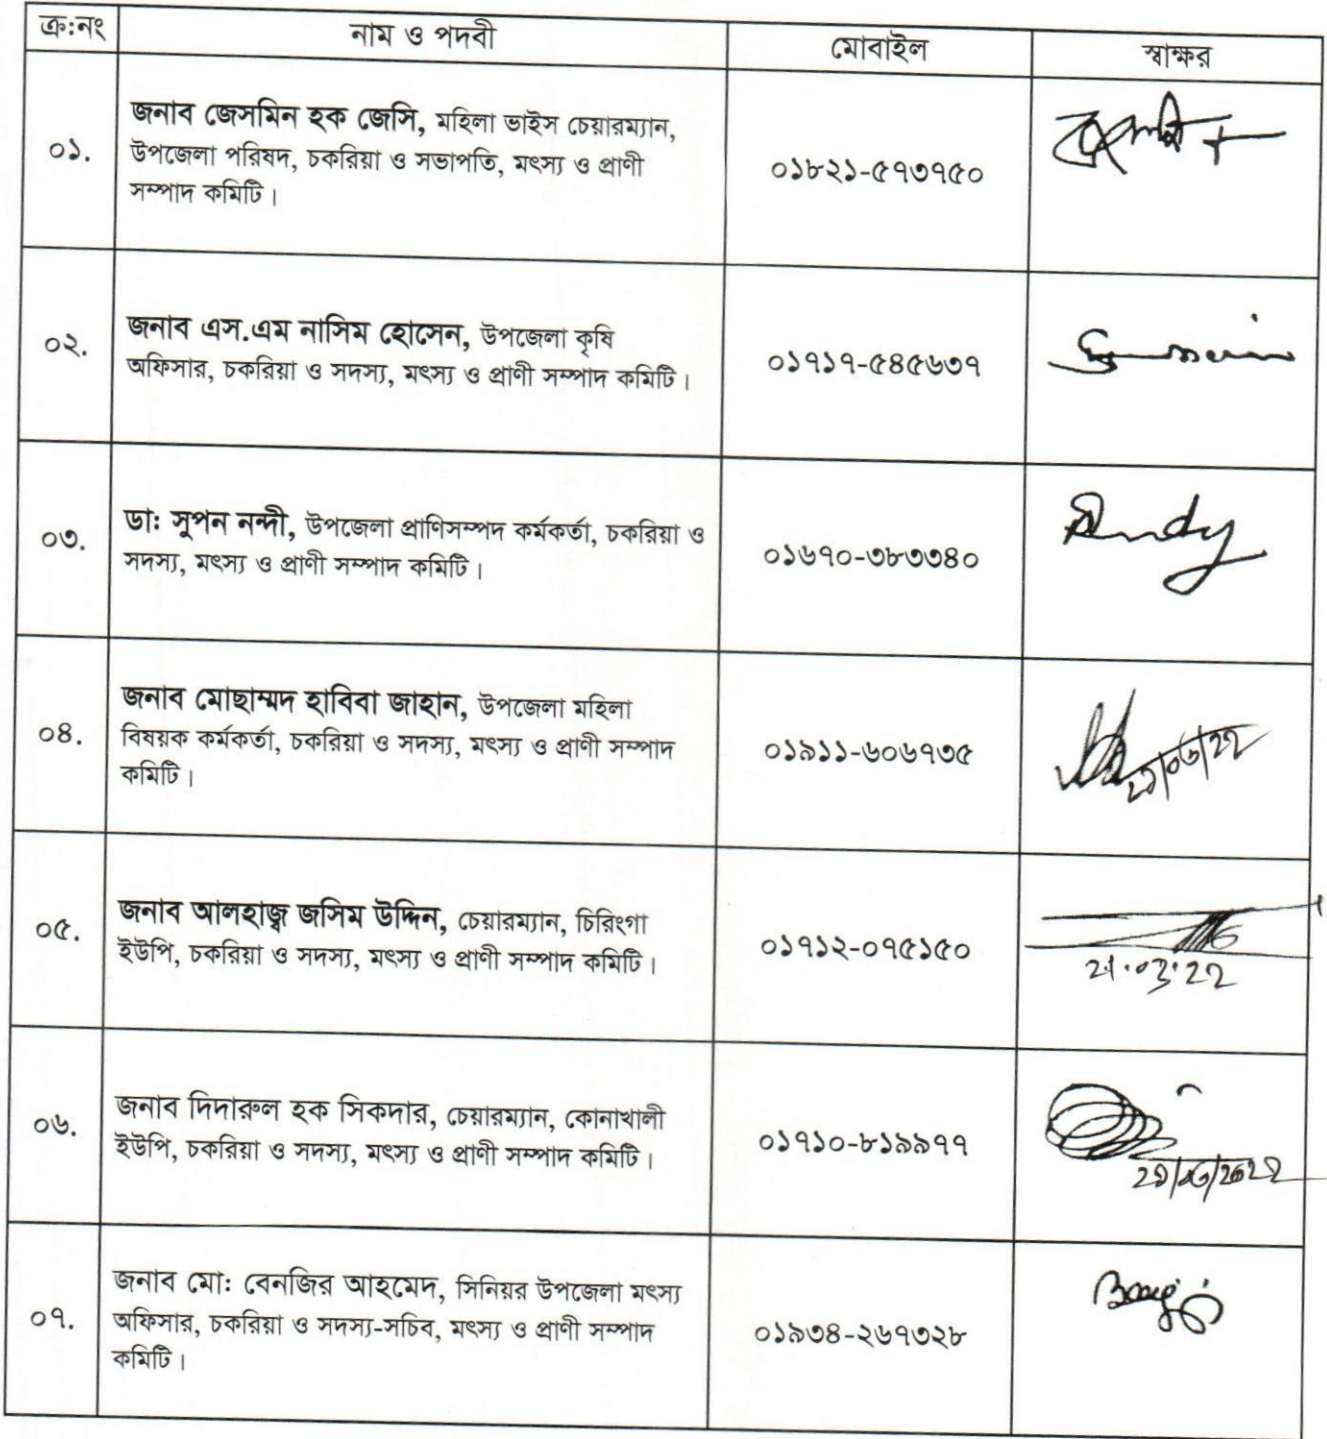 ক্র:নং নাম ও পদবী মোবাইল স্বাক্ষর
০১. জনাব জেসমিন হক জেসি, মহিলা ভাইস চেয়ারম্যান,
উপজেলা পরিষদ, চকরিয়া ও সভাপতি, মৎস্য ও প্রাণী
সম্পাদ কমিটি। ০১৮২১-৫৭৩৭৫০
০২. জনাব এস.এম নাসিম হোসেন, উপজেলা কৃষি
অফিসার, চকরিয়া ও সদস্য, মৎস্য ও প্রাণী সম্পাদ কমিটি। ০১৭১৭-৫৪৫৬৩৭
০৩. ডা: সুপন নন্দী, উপজেলা প্রাণিসম্পদ কর্মকর্তা, চকরিয়া ও
সদস্য, মৎস্য ও প্রাণী সম্পাদ কমিটি। ০১৬৭০-৩৮৩৩৪০
০৪. জনাব মোছাম্মদ হাবিবা জাহান, উপজেলা মহিলা
বিষয়ক কর্মকর্তা, চকরিয়া ও সদস্য, মৎস্য ও প্রাণী সম্পাদ
কমিটি। ০১৯১১-৬০৬৭৩৫
০৫. জনাব আলহাজ্ব জসিম উদ্দিন, চেয়ারম্যান, চিরিংগা
ইউপি, চকরিয়া ও সদস্য, মৎস্য ও প্রাণী সম্পাদ কমিটি। ০১৭১২-০৭৫১৫০
21.03.22
০৬. জনাব দিদারুল হক সিকদার, চেয়ারম্যান, কোনাখালী
ইউপি, চকরিয়া ও সদস্য, মৎস্য ও প্রাণী সম্পাদ কমিটি। ০১৭১০-৮১৯৯৭৭
০৭. জনাব মো: বেনজির আহমেদ, সিনিয়র উপজেলা মৎস্য
অফিসার, চকরিয়া ও সদস্য-সচিব, মৎস্য ও প্রাণী সম্পাদ
কমিটি। ০১৯৩৪-২৬৭৩২৮